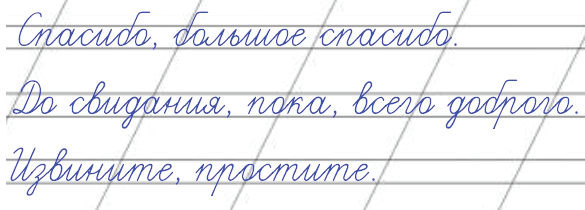 Спасибо, большое спасибо.
До свидания, пока, всего доброго.
Извините, простите.